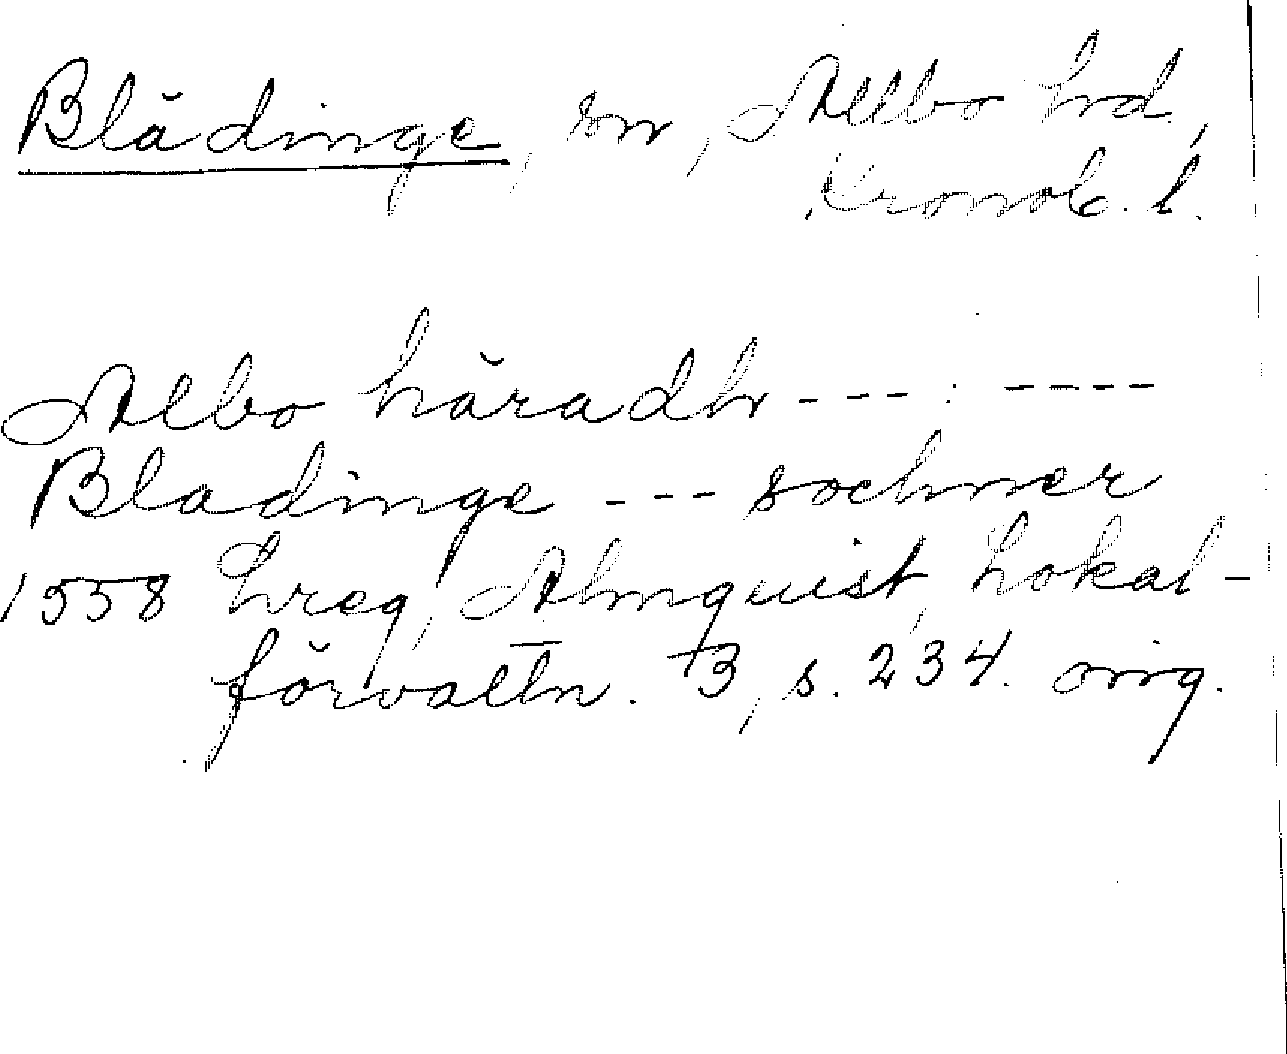 Blädinge, sn, Allbo hrd,
Kronob. l.
Albo häradh --- : ----
Bladinge --- sochner
1558 hreg, Almquist, Lokal-
förvaltn. 3, s. 234. orig.